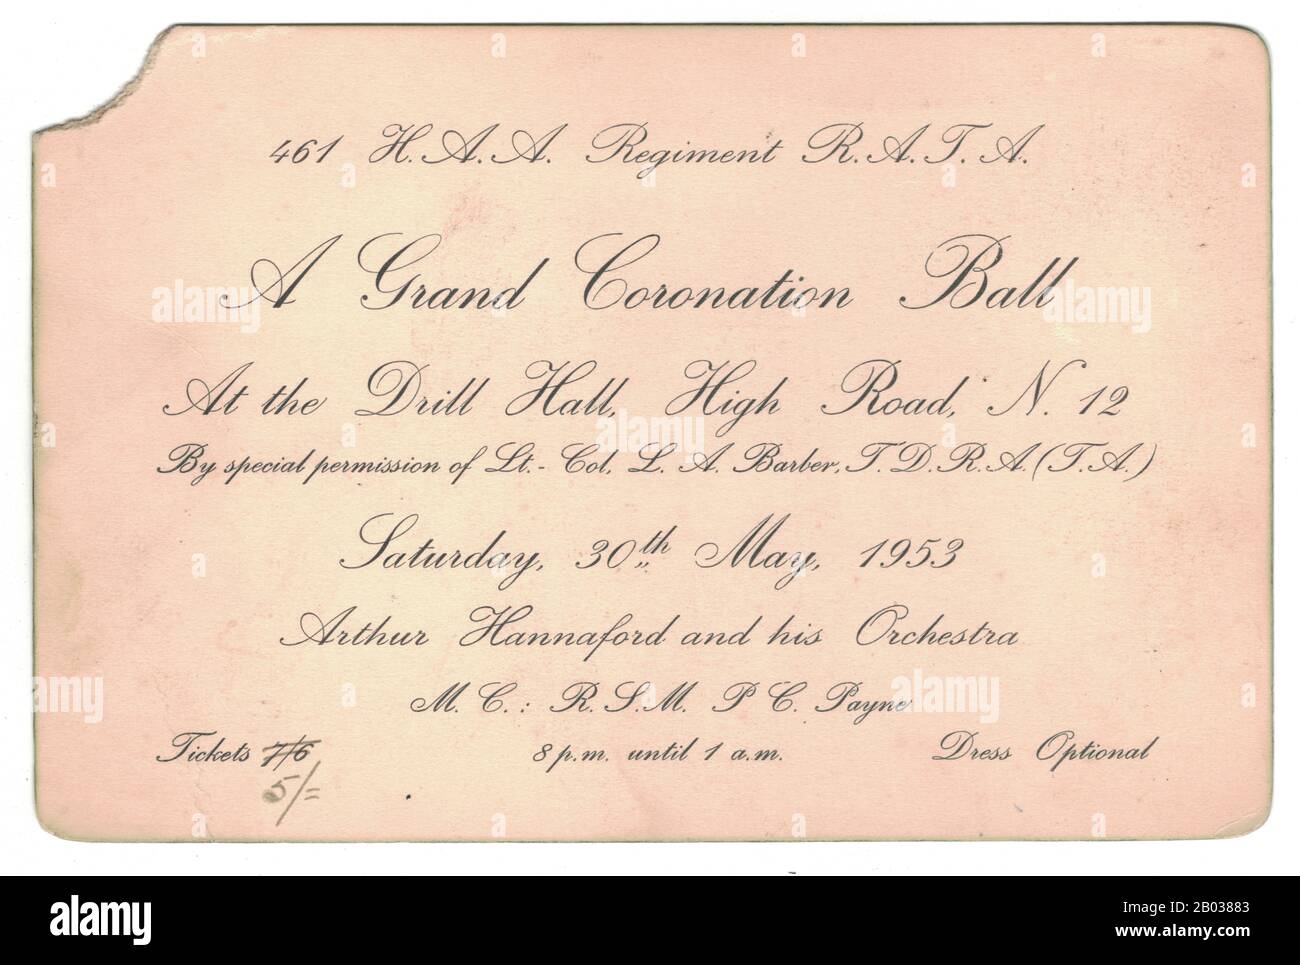 461 H.A.A. Regiment R.A.T.A.
A Grand Coronation Ball
At the Drill Hall, High Road, N. 12
By special permission of Lt.-Col. L. A. Barber, T.D.R.A.(T.A.)
Saturday, 30th May, 1953
Arthur Hannaford and his Orchestra
M.C.: R.S.M. P C. Payne
Tickets 7/6 8 p.m. until 1 a.m. Dress Optional
5/=
alamy
Image ID: 2B03883
www.alamy.com